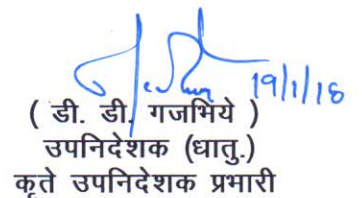 19/1/18
( डी. डी. गजभिये )
उपनिदेशक (धातु.)
कृते उपनिदेशक प्रभारी